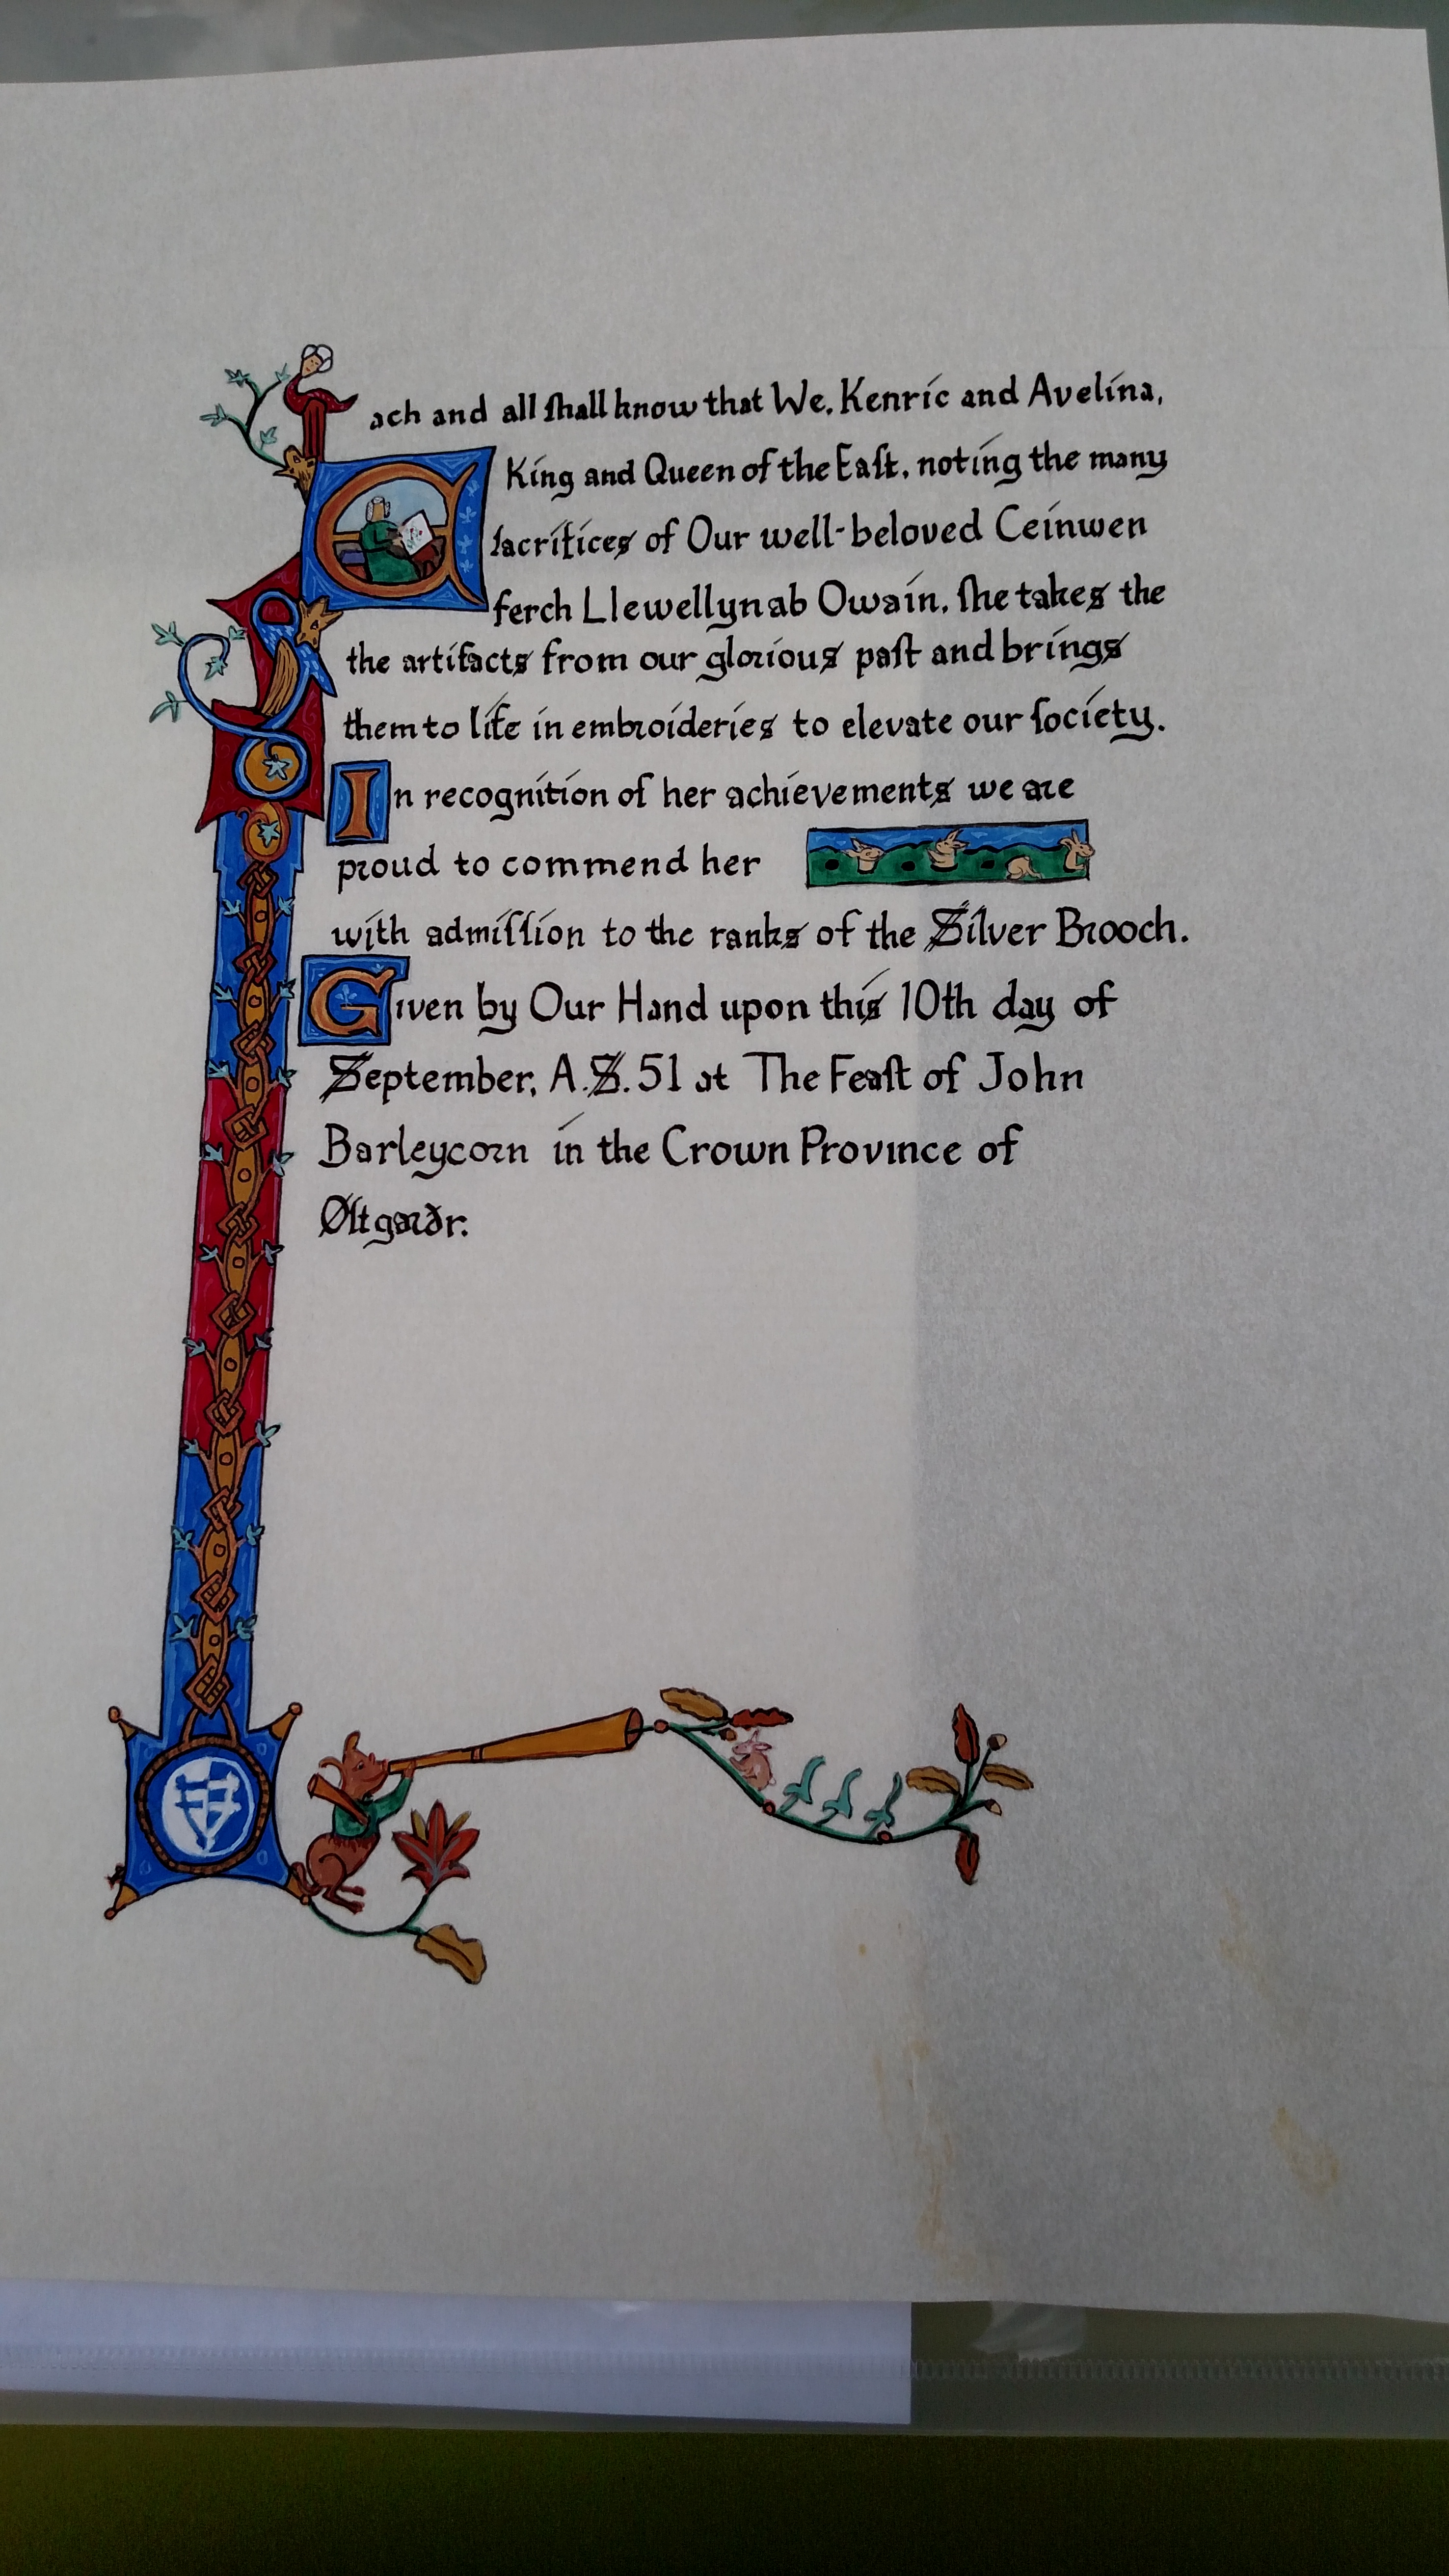 Each and all ſhall know that We, Kenric and Avelina,
King and Queen of the Eaſt, noting the many
ſacrifices of Our well-beloved Ceinwen
ferch Llewellyn ab Owain, ſhe takes the
the artifacts from our glorious paſt and brings
them to life in embroideries to elevate our ſociety.
In recognition of her achievements we are
proud to commend her
with admiſſion to the ranks of the Silver Brooch.
Given by Our Hand upon this 10th day of
September, A.S. 51 at The Feaſt of John
Barleycorn in the Crown Province of
Øſtgarðr.